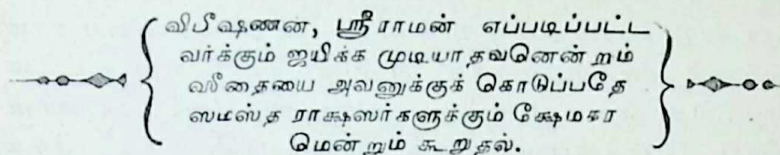 விபீஷணன், ஸ்ரீராமன் எப்படிப்பட்ட
வர்க்கும் ஜயிக்க முடியாதவனென்றும்
ஸீதையை அவனுக்குக் கொடுப்பதே
ஸமஸ்த ராக்ஷஸர்களுக்கும் க்ஷேமகர
மென்றும் கூறுதல்.